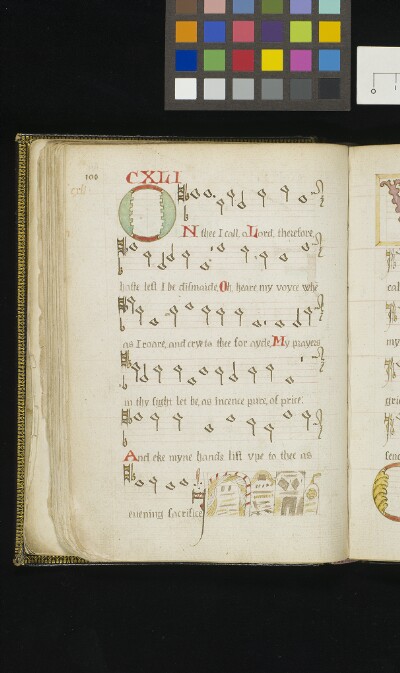 109
CXLI
ON thee I call, o Lord, therefore,
haste lest I be dismaide, Oh, heare my voyce whē
as I roare, and cry to thee for ayde, My prayers
in thy sight let be, as incence pure, of price:
And eke myne hands lift vpe to thee as
euening sacrifice